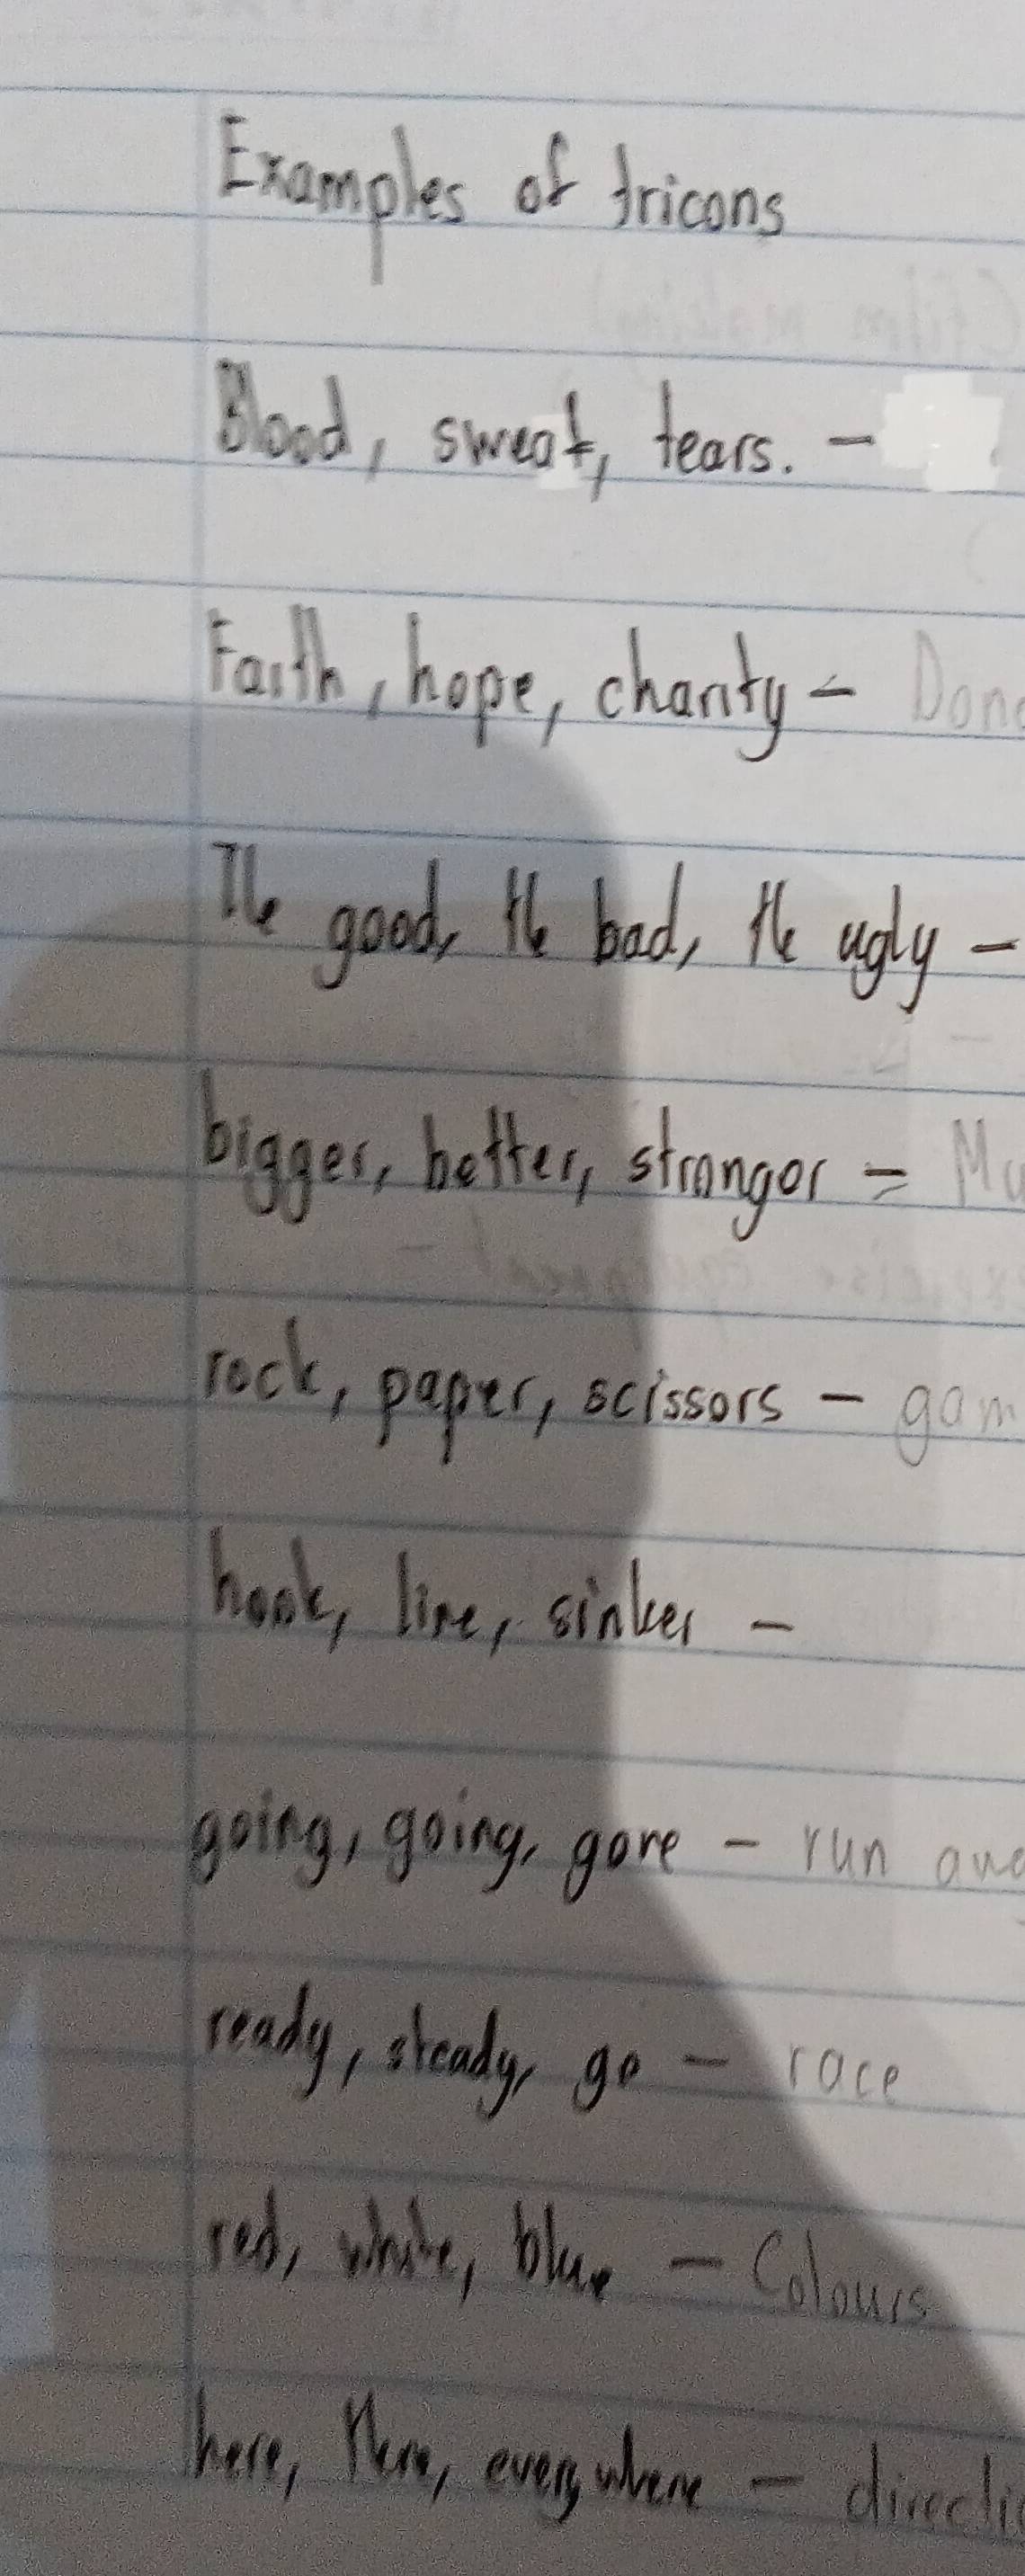 Examples of tricons
Blood, sweat, tears. -
Faith, hope, charity -
The good, the bad, the ugly -
bigger, better, stronger =
rock, paper, scissors - gam
hook, line, sinker -
going, going, gone - run
ready, steady, go - race
red, white, blue - Colours
here, there, everywhere -